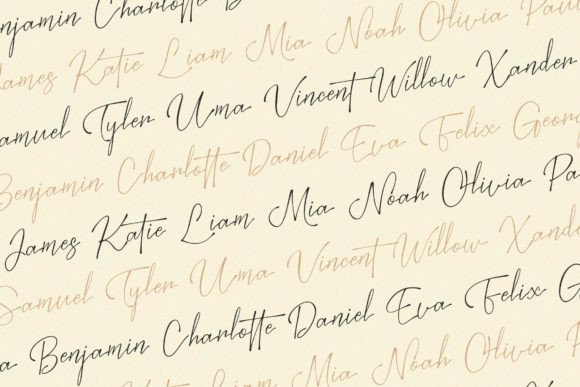 Benjamin Charlotte
James Katie Liam Mia Noah Olivia Paul
Samuel Tyler Uma Vincent Willow Xander
Benjamin Charlotte Daniel Eva Felix George
James Katie Liam Mia Noah Olivia Pa
Samuel Tyler Uma Vincent Willow Xander
a Benjamin Charlotte Daniel Eva Felix G
James Katie Liam Mia Noah Olivia